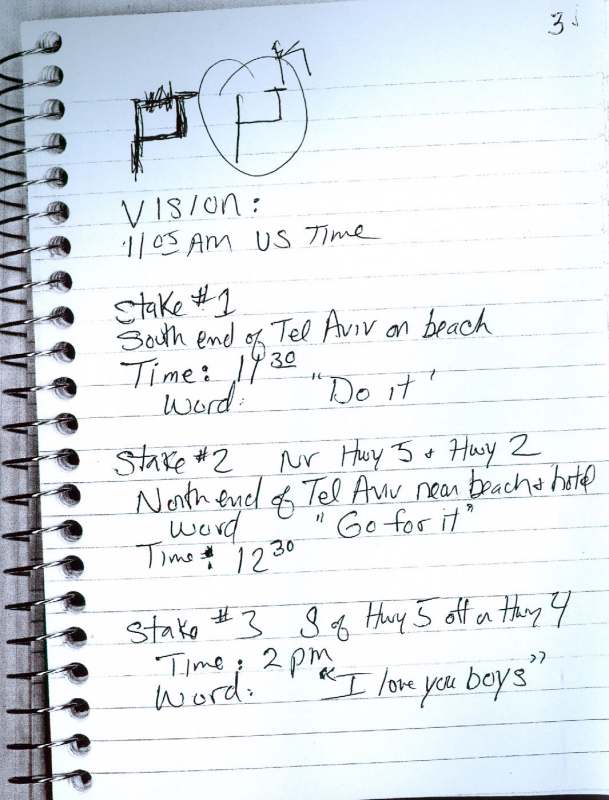 3
VISION:
11 05 AM US Time
Stake #1
South end of Tel Aviv on beach
Time: 11 30
Word: "Do it'
Stake #2 Nr Hwy 5 + Hwy 2
North end of Tel Aviv near beach + hotel
Word "Go for it"
Time: 12 30
Stake #3 S of Hwy 5 off on Hwy 4
Time: 2 pm
Word: "I love you boys"